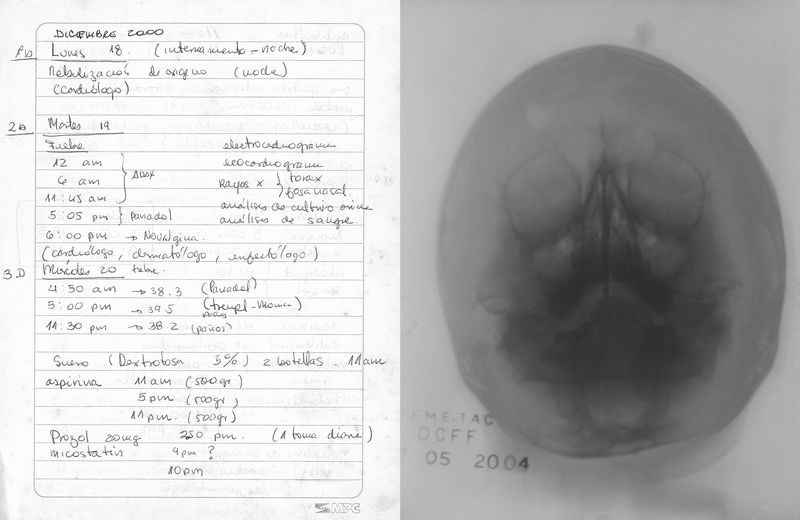 DICIEMBRE 2000
Lunes 18. (internamiento - noche)
Nebulización de oxígeno (noche)
(cardiólogo)
2D Martes 19
Fiebre electrocardiograma
12 am ecocardiograma
6 am Rayos X } torax
11:45 am fosa nasal.
5:05 pm } Panadol análisis de cultivo orina
análisis de sangre.
6:00 pm → Novalgina.
(cardiólogo, dermatólogo, infectólogo)
3D Miércoles 20 fiebre.
4:50 am → 38.3 (Panadol)
5:00 pm → 39.5
11:30 pm → 38.2 (paños)
Suero (Dextrotosa 5%) 2 botellas. 11am
aspirina 11am (500gr)
5pm (500gr)
11pm. (500gr)
Prozol 20mg 250 pm. (1 toma diaria)
micostatin 4pm ?
10pm
MPC
EME.TAC
DCFF
05 2004